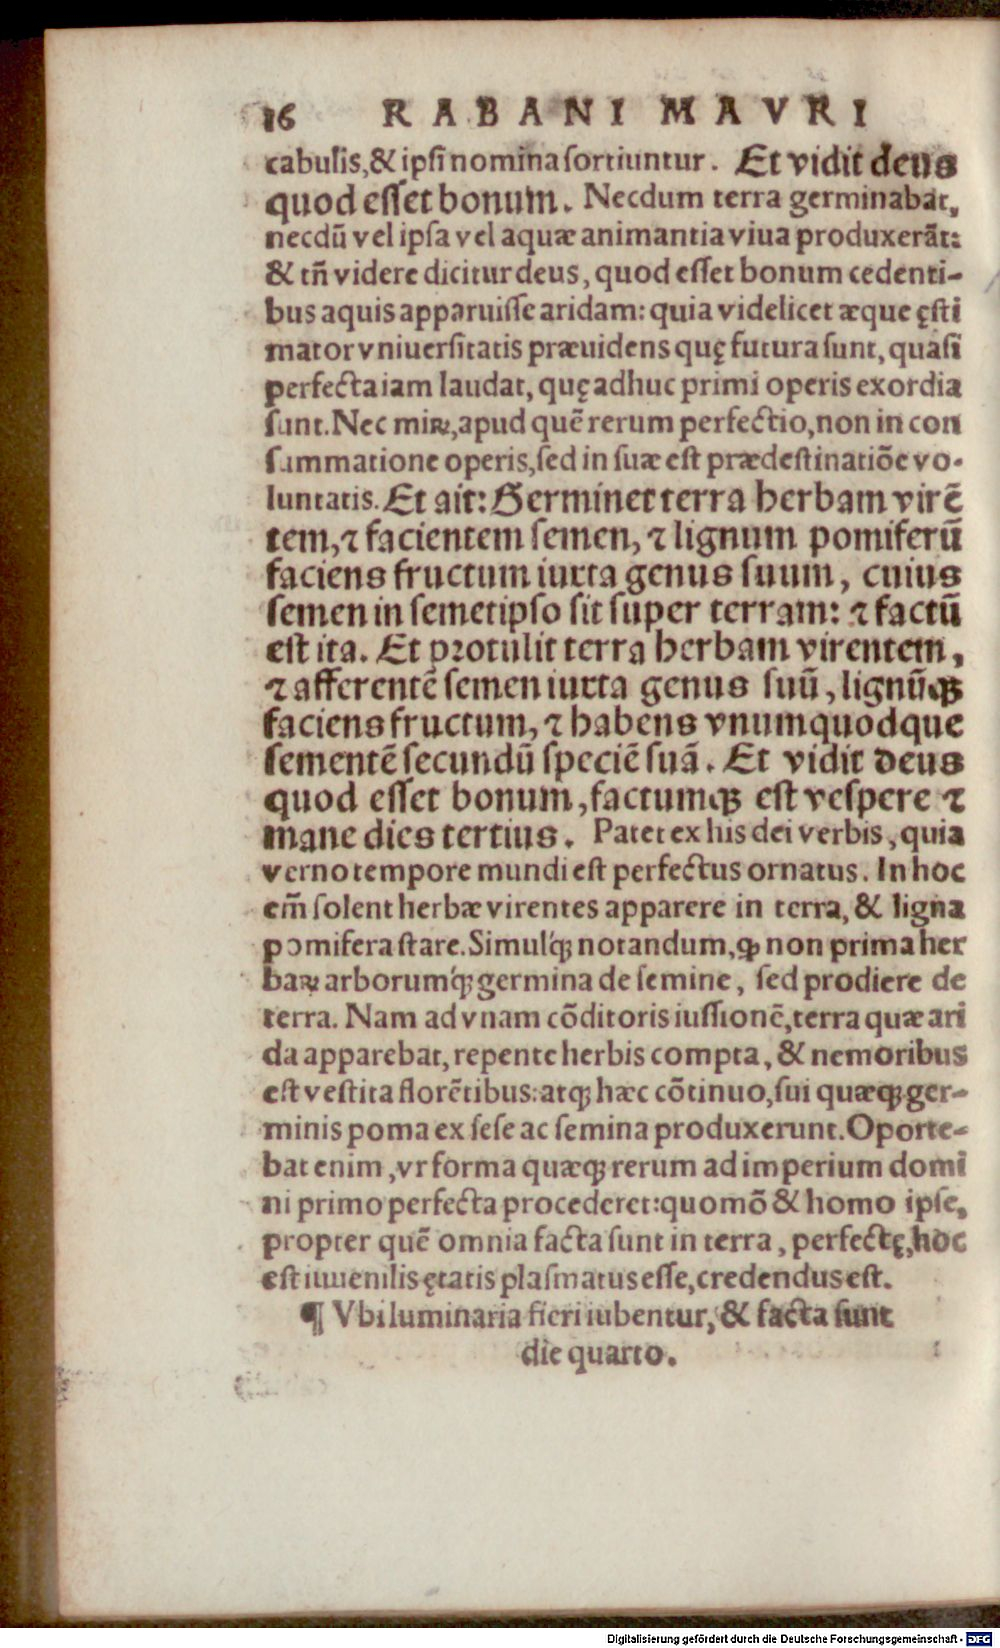 16 RABANI MAVRI
cabulis, & ipsi nomina sortiuntur. Et vidit deus
quod esset bonum. Necdum terra germinabat,
necdũ vel ipsa vel aquæ animantia viua produxerãt:
& tñ videre dicitur deus, quod esset bonum cedenti-
bus aquis apparuisse aridam: quia videlicet æque ęsti
mator vniuersitatis præuidens quę futura sunt, quasi
perfecta iam laudat, quę adhuc primi operis exordia
sunt. Nec miꝝ, apud quẽ rerum perfectio, non in con
summatione operis, sed in suæ est prædestinatiõe vo-
luntatis. Et ait: Germinet terra herbam virẽ
tem, ⁊ facientem semen, ⁊ lignum pomiferũ
faciens fructum iuxta genus suum, cuius
semen in semetipso sit super terram: ⁊ factũ
est ita. Et protulit terra herbam virentem,
⁊ afferentẽ semen iuxta genus suũ, lignũꝙ
faciens fructum, ⁊ habens vnumquodque
sementẽ secundũ speciẽ suã. Et vidit deus
quod esset bonum, factumꝙ est vespere ⁊
mane dies tertius. Patet ex his dei verbis, quia
verno tempore mundi est perfectus ornatus. In hoc
em̃ solent herbæ virentes apparere in terra, & ligna
pomifera stare. Simulq́ꝫ notandum, ꝙ non prima her
baꝝ arborumq́ꝫ germina de semine, sed prodiere de
terra. Nam ad vnam cõditoris iussionẽ, terra quæ ari
da apparebat, repente herbis compta, & nemoribus
est vestita florẽtibus: atqꝫ hæc cõtinuo, sui quæqꝫ ger-
minis poma ex sese ac semina produxerunt. Oporte-
bat enim, vt forma quæqꝫ rerum ad imperium domi
ni primo perfecta procederet: quomõ & homo ipse,
propter quẽ omnia facta sunt in terra, perfectę, hoc
est iuuenilis ętatis plasmatus esse, credendus est.
¶ Vbi luminaria fieri iubentur, & facta sunt
die quarto.
Digitalisierung gefördert durch die Deutsche Forschungsgemeinschaft - DFG